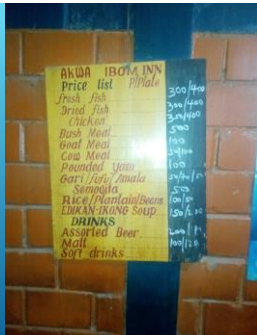 AKWA IBOM INN
Price list P/Plate
fresh fish 300/400
Dried fish 300/400
Chicken 350/400
Bush Meat 500
Goat Meat 100
Cow Meat
Pounded Yam 100
Gari/fufu/Amala
Semovita 50
Rice/Plantain/Beans
EDIKAN-IKONG Soup
DRINKS
Assorted Beer
Malt
Soft drinks